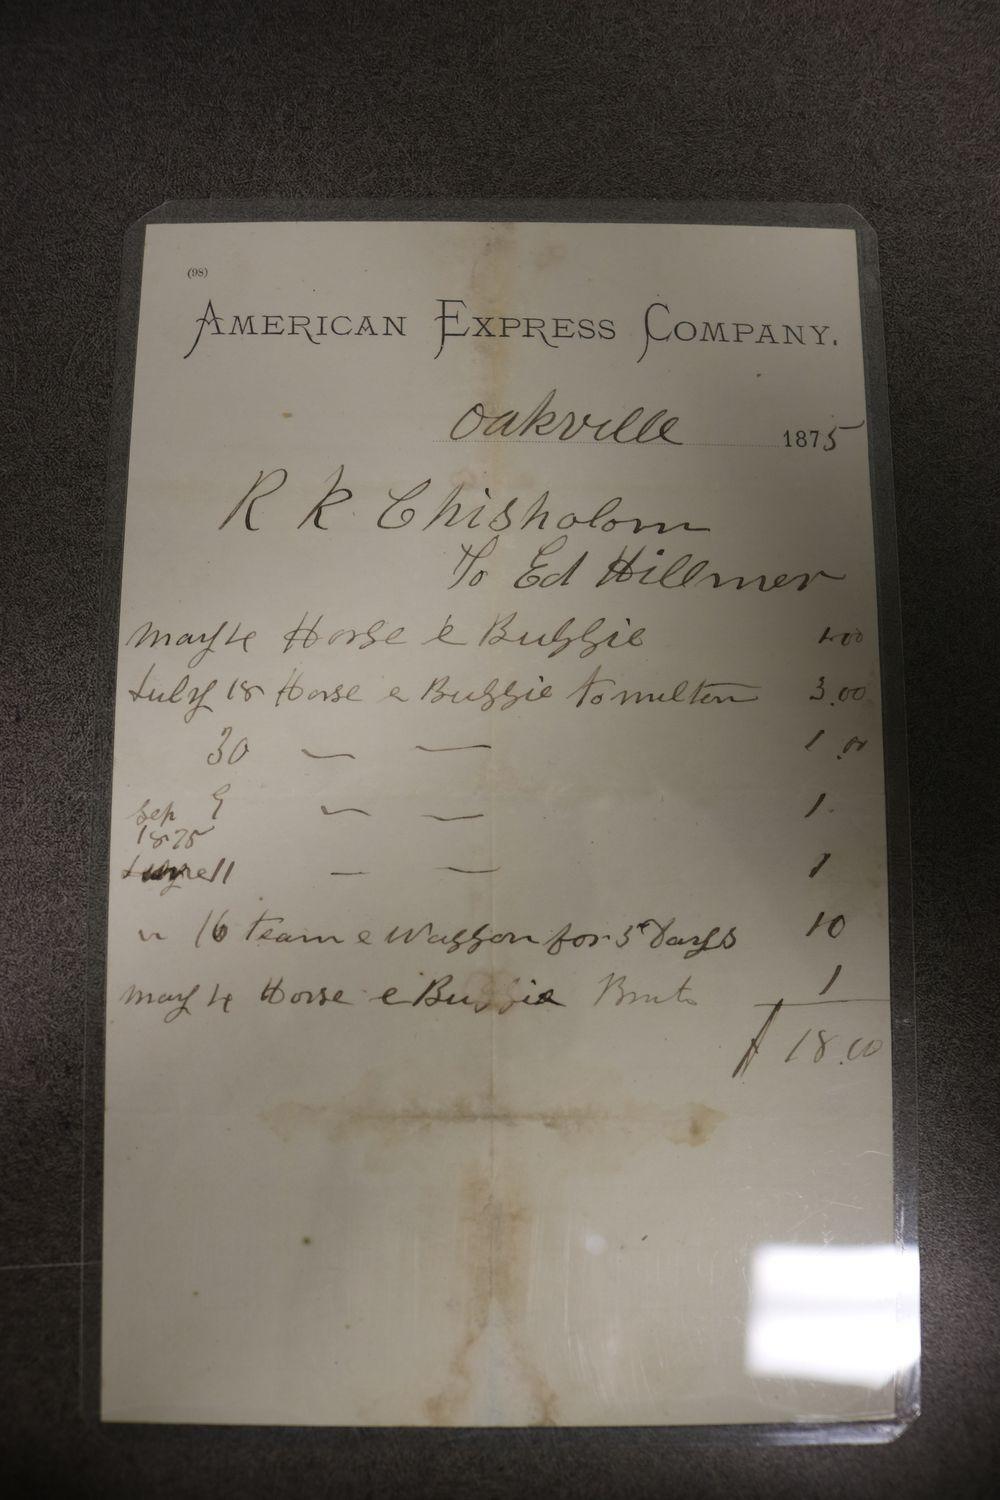 (98)
AMERICAN EXPRESS COMPANY.
Oakville 1875
R K Chisholom
To Ed Hillmer
may 4 Horse & Buggie 1.00
July 18 Horse & Buggie to milton 3.00
30 — — 1.00
Sep 9 — — 1.
1875
11 — — 1
" 16 team & Waggon for 5 Days 10
may 4 Horse & Buggie 1
$ 18.00